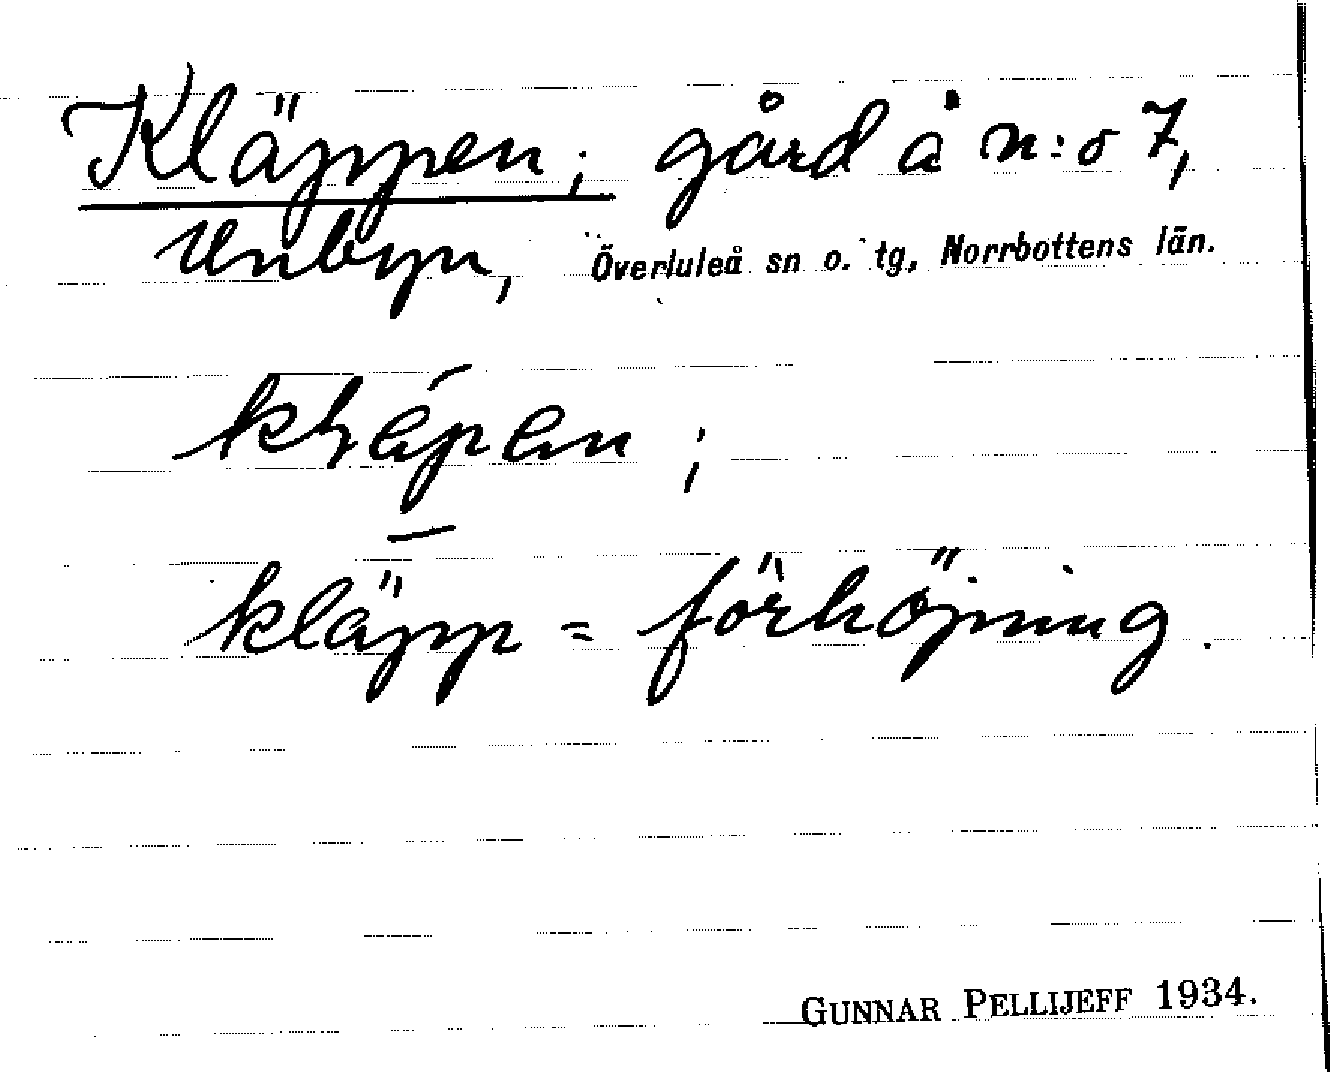 Kläppen; gård å n:o 7,
Unbyn, Överluleå sn o. tg, Norrbottens län.
kläpp = förhöjning.
GUNNAR PELLIJEFF 1934.